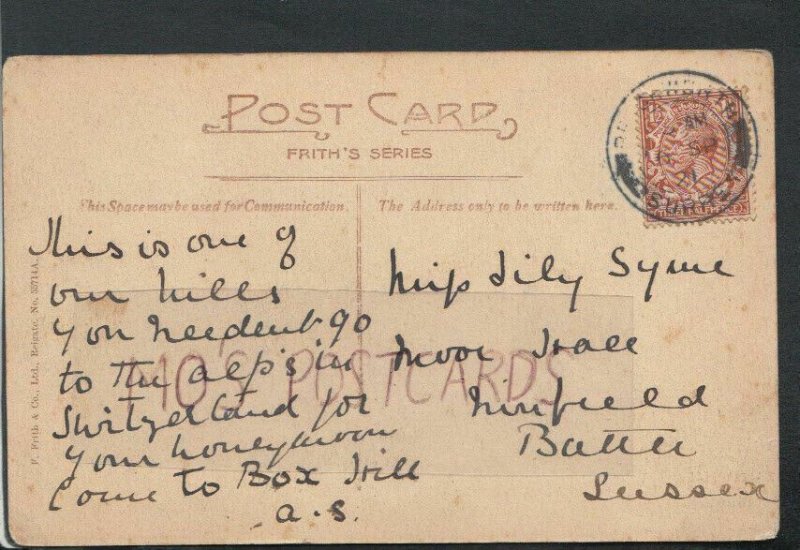 POST CARD
FRITH'S SERIES
This Space may be used for Communication.
The Address only to be written here.
This is one of
our hills
you needent go
to the alp's in
Switzerland for
your honeymoon
Come to Box Hill
a.s.
Miss Lily Syme
Moor Hall
Ninfield
Battle
Sussex
F. Frith & Co., Ltd., Reigate. No. 35714A.
MO'S POSTCARDS
SURREY